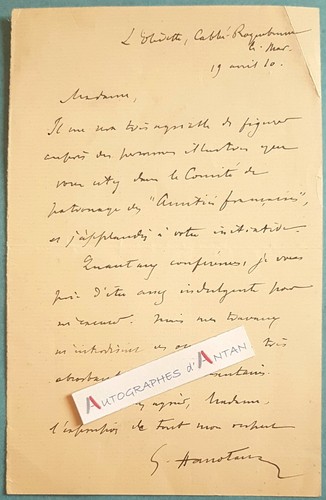 Cabbé-Roquebrune
19 avril 10.
Madame,
Il me sera très agréable de figurer
auprès des personnes illustres que
vous citez dans le Comité de
patronage des "Amitiés françaises",
et j'applaudis à votre initiative.
Quant aux conférences, je vous
prie d'être assez indulgente pour
m'excuser. Mais mes travaux
très
AUTOGRAPHES d'ANTAN
agréer, Madame,
l'expression de tout mon respect
G. Hanotaux